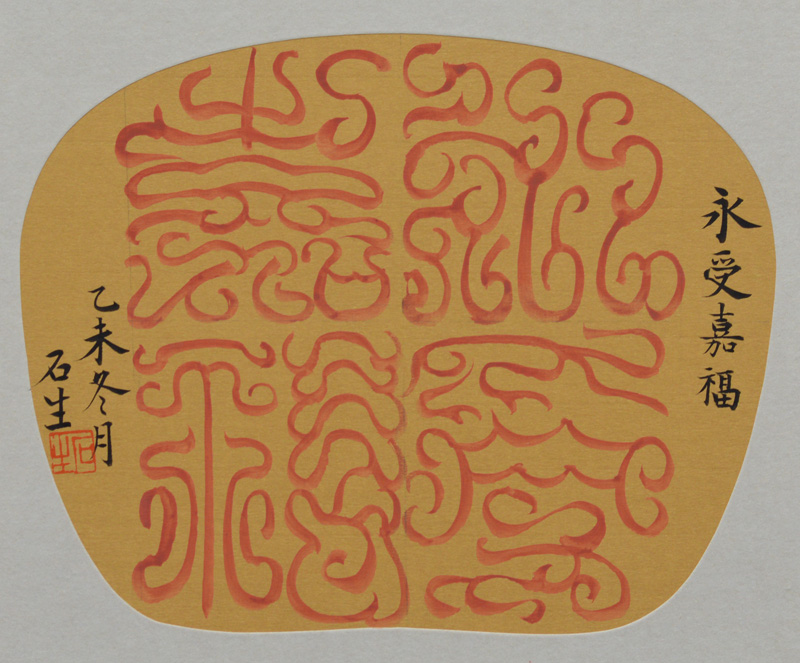 永受嘉福
永受嘉福
乙未冬月
石生
石生